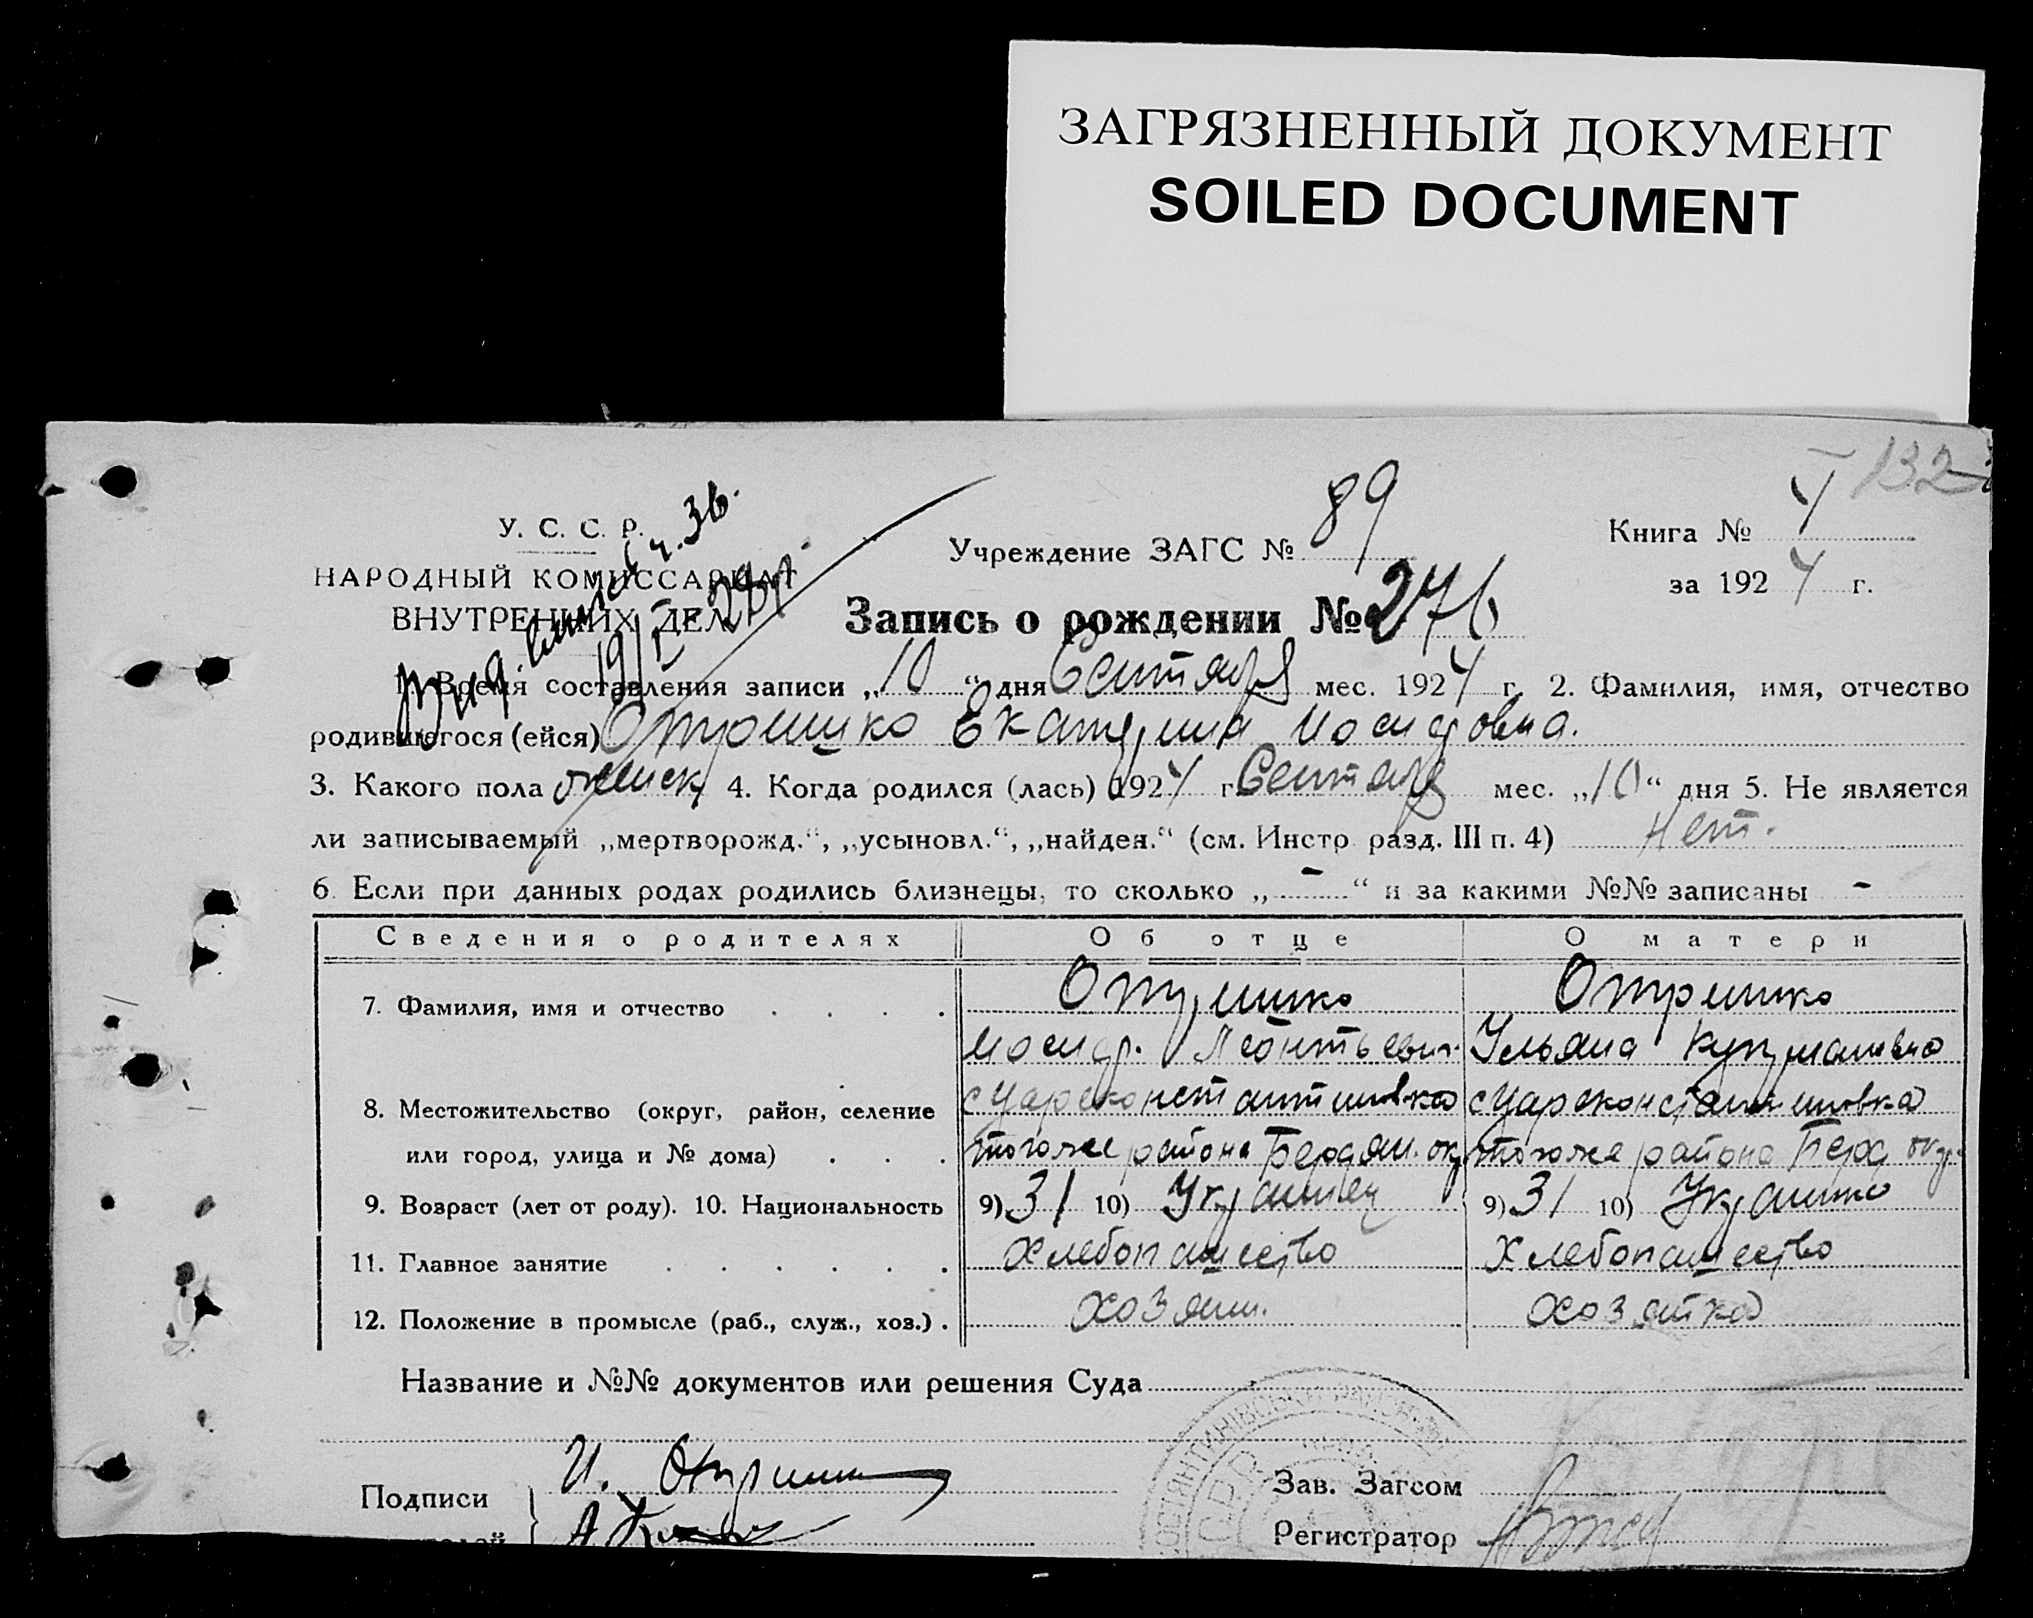 ЗАГРЯЗНЕННЫЙ ДОКУМЕНТ
SOILED DOCUMENT
132
У. С. С. Р.
НАРОДНЫЙ КОМИССАРИАТ
ВНУТРЕННИХ ДЕЛ
Учреждение ЗАГС № 89
Книга №
за 1924 г.
Запись о рождении № 276
1. Время составления записи „10“ дня Сентября мес. 1924 г. 2. Фамилия, имя, отчество
родившегося (ейся) Отришко Екатерина Иосифовна.
3. Какого пола женск 4. Когда родился (лась) 1924 г Сентября мес. „10“ дня 5. Не является
ли записываемый „мертворожд.“, „усыновл.“, „найден.“ (см. Инстр разд. III п. 4) Нет.
6. Если при данных родах родились близнецы, то сколько „-“ и за какими №№ записаны -
Сведения о родителях Об отце О матери
7. Фамилия, имя и отчество Отришко Отришко
Иосиф. Леонтьевич. Ульяна
8. Местожительство (округ, район, селение с Цареконстантиновка с Цареконстантиновка
или город, улица и № дома) тогоже района Бердян. окр тогоже района Берд окр.
9. Возраст (лет от роду). 10. Национальность 9) 31 10) Украинец 9) 31 10) Украинка
11. Главное занятие Хлебопашество Хлебопашество
12. Положение в промысле (раб., служ., хоз.) хозяин. хозяйка
Название и №№ документов или решения Суда
Подписи И. Отришко
Зав. Загсом
Регистратор